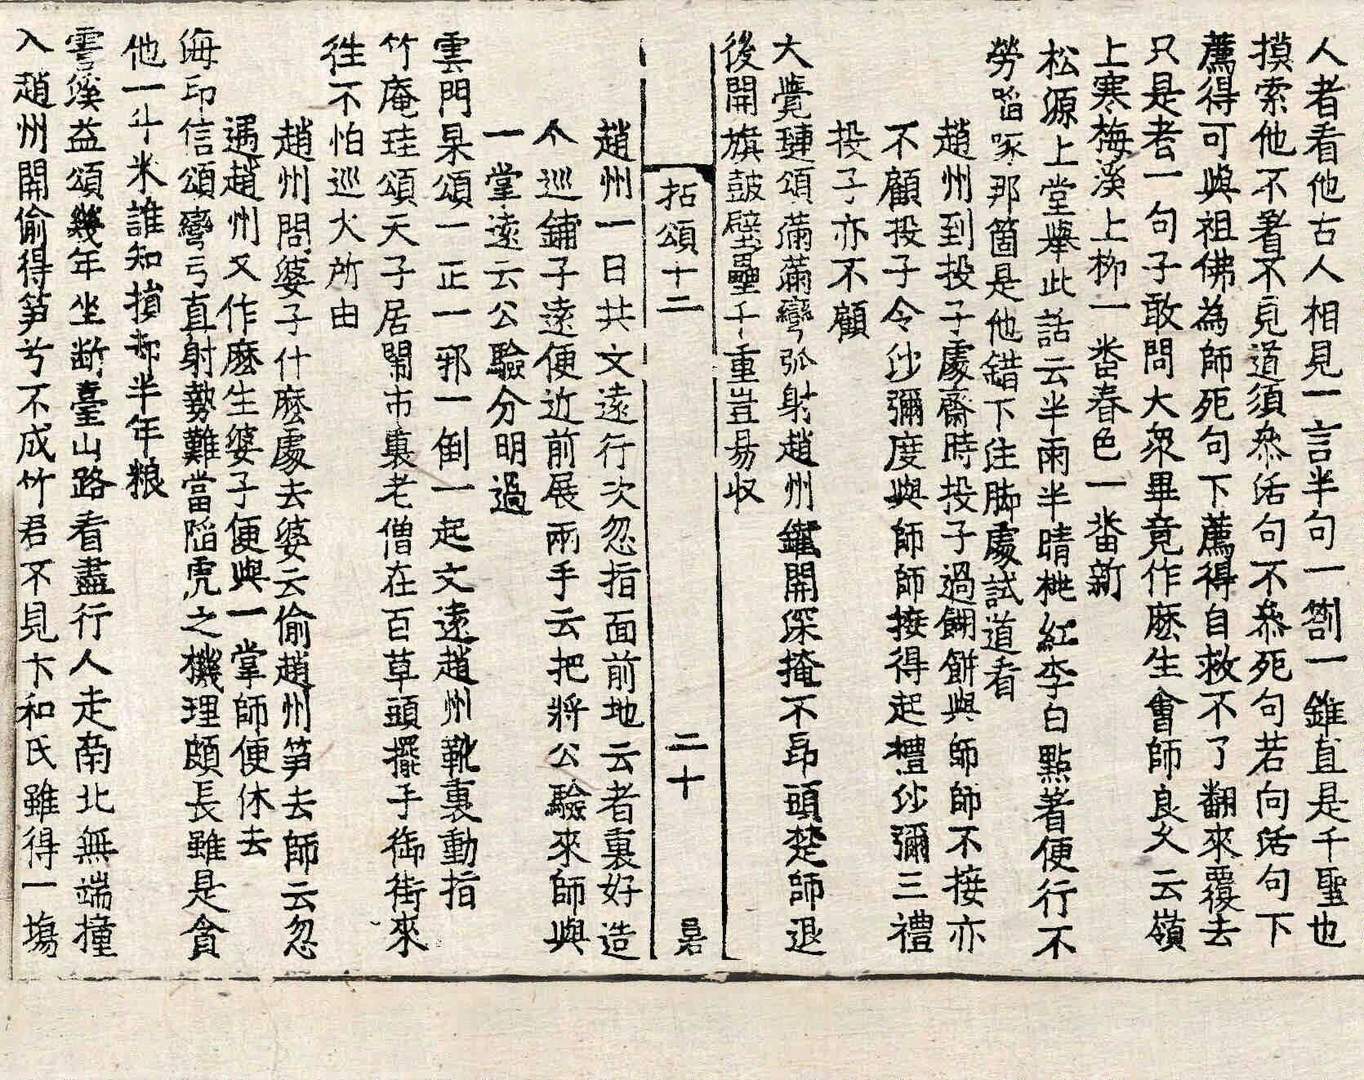 人者看他古人相見一言半句一劄一錐直是千聖也
摸索他不著不見道須叅活句不叅死句若向活句下
薦得可與祖佛為師死句下薦得自救不了翻來覆去
只是者一句子敢問大衆畢竟作麽生會師良久云嶺
上寒梅溪上柳一畨春色一畨新
松源上堂擧此話云半雨半晴桃紅李白點著便行不
勞啗啄那箇是他錯下注脚處試道看
趙州到投子處齋時投子過餬餅與師師不接亦
不顧投子令沙彌度與師師接得起禮沙彌三禮
投子亦不顧
大覺璉頌滿滿彎弧射趙州鑵開深掩不昂頭楚師退
後開旗鼓壁壘千重豈易収
拈頌十二
二十
趙州一日共文遠行次忽指面前地云者裏好造
个巡鋪子遠便近前展兩手云把將公驗來師與
一掌遠云公驗分明過
雲門杲頌一正一邪一倒一起文遠趙州靴裏動指
竹庵珪頌天子居閙市裏老僧在百草頭擺手御街來
徃不怕巡火所由
趙州問婆子什麽處去婆云偷趙州笋去師云忽
遇趙州又作麽生婆子便與一掌師便休去
海印信頌彎弓直射勢難當陷虎之機理頗長雖是貪
他一斗米誰知損却半年粮
霅溪益頌幾年坐断臺山路看盡行人走南北無端撞
入趙州開偷得笋兮不成竹君不見卞和氏雖得一塲